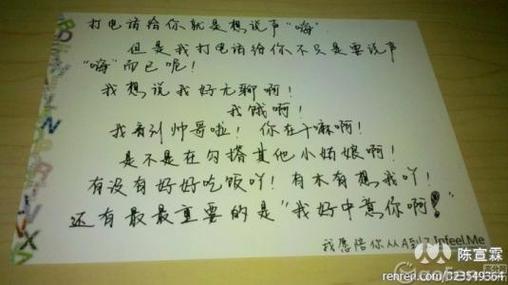 打电话给你就是想说声“嗨”
但是我打电话给你不只是要说声
“嗨”而已呢！
我想说我好无聊啊！
我饿啊！
我看到帅哥啦！你在干嘛啊！
是不是在勾搭其他小姑娘啊！
有没有好好吃饭吖！有木有想我吖！
还有最最重要的是“我好中意你啊！”
我愿陪你从A到Z Infeel.Me
人人 陈宣霖
renren.com/323549364